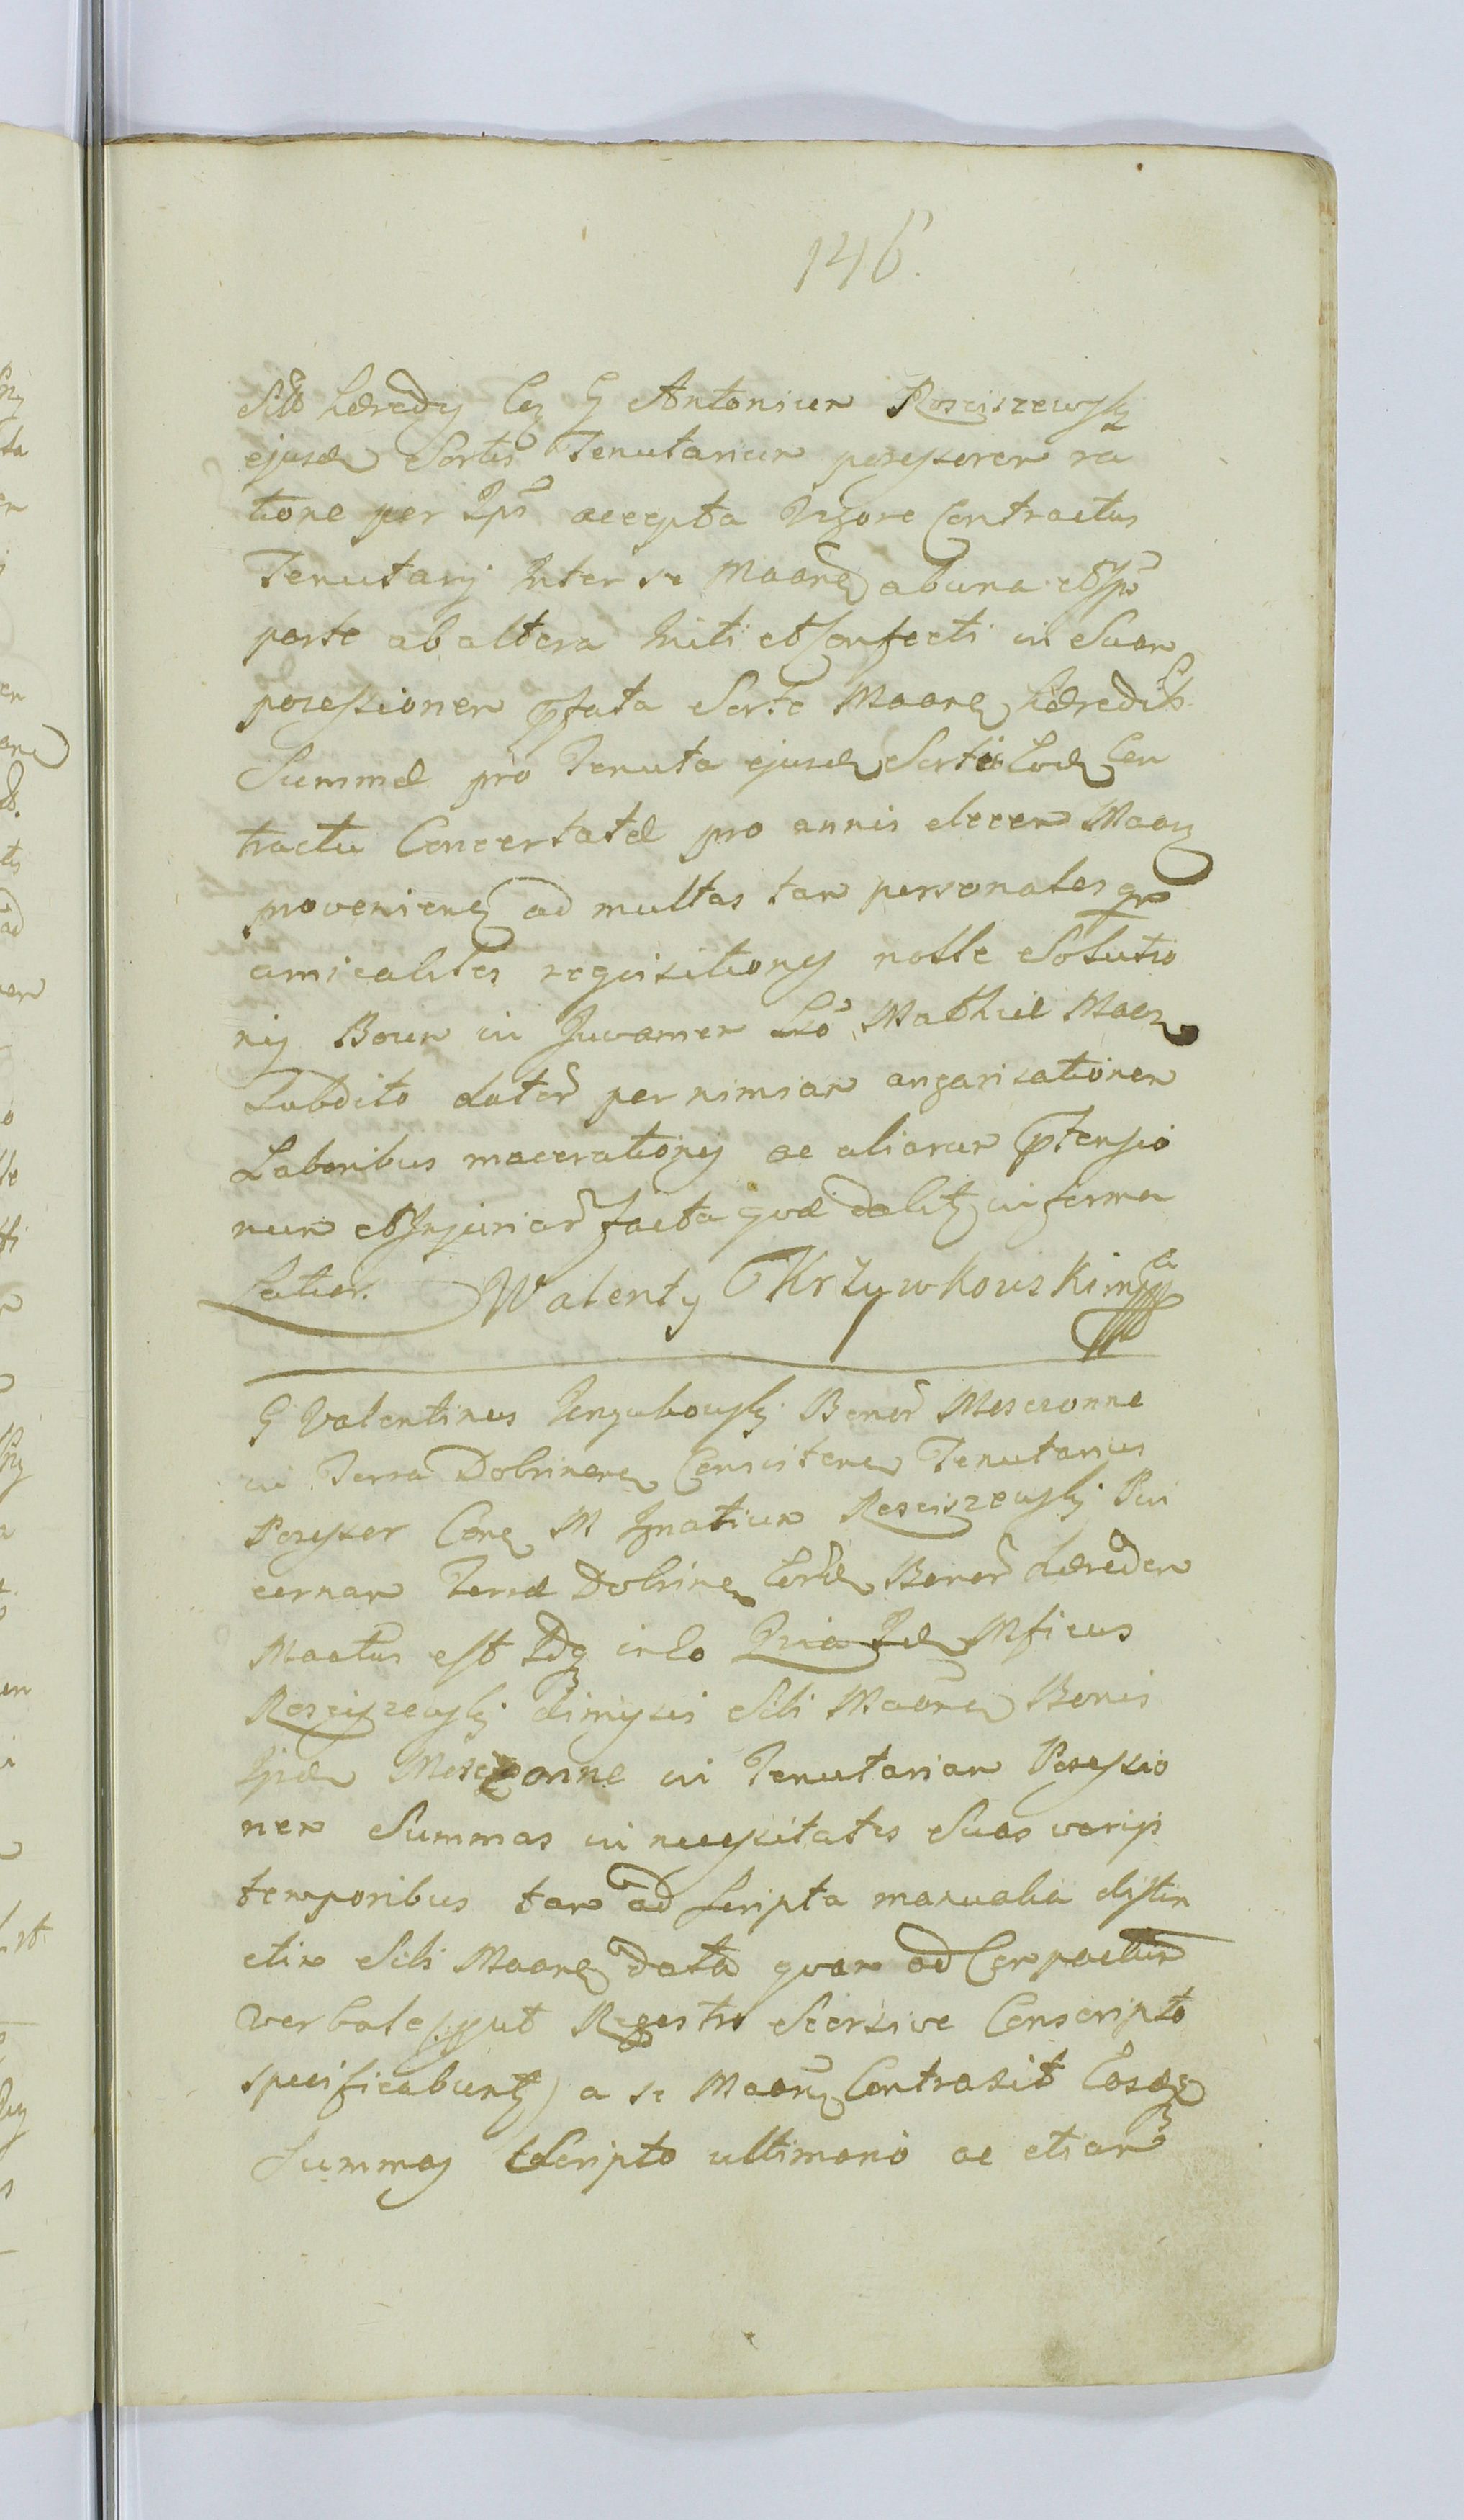 146.
Hæredis G Antonium Rosciszewsk
ejusd Sortis Tenutarium posessorem ra
tione per Ips accepta Vigore Contractus
Tenutarij Inter se Maane ab una et Ips
parte ab altera Initi et Confecti in Suam
posessionem pfata Sorte Maane Hæredit
Summæ pro Tenuta ejusd Sortis Eod Con
tractu Concertatæ pro annis decem Maan
provenien ad multas tam personales qm
amicabiles requisitiones nolle Solutio
nis Boum in Juvamen Lab Mathiæ Maen
Subdito dator per nimiam angarisationem
Laboribus macerationis ac aliarum Ptensio
num et Injuriar facta qvæ dabitz in forma
Latior. Walenty Krzywkowski mpa
G Valentinus Bonor Moszczonne
in Terra Dobrinen Consisten Tenutarius
Posessor Con M Ignatium Rosciszewski Pin
cernam Terræ Dobrinen Eord Bonor Hæredem
Maatus est Idq ideo Quia Id Mficus
Rosciszewski dimissis Sibi Maane Bonis
Ipsd Moszczonne in Tenutariam Posessio
nem Summas in necessitates Suas varijs
temporibus tam ad Scripta manualia distin
ctim Sibi Maane data quam ad Compactum
verbale (:put Regestro Seorsive Conscripto
specificabuntz) a se Maane Contraxit Easdq
Summas Scripto ultimario ac etiam